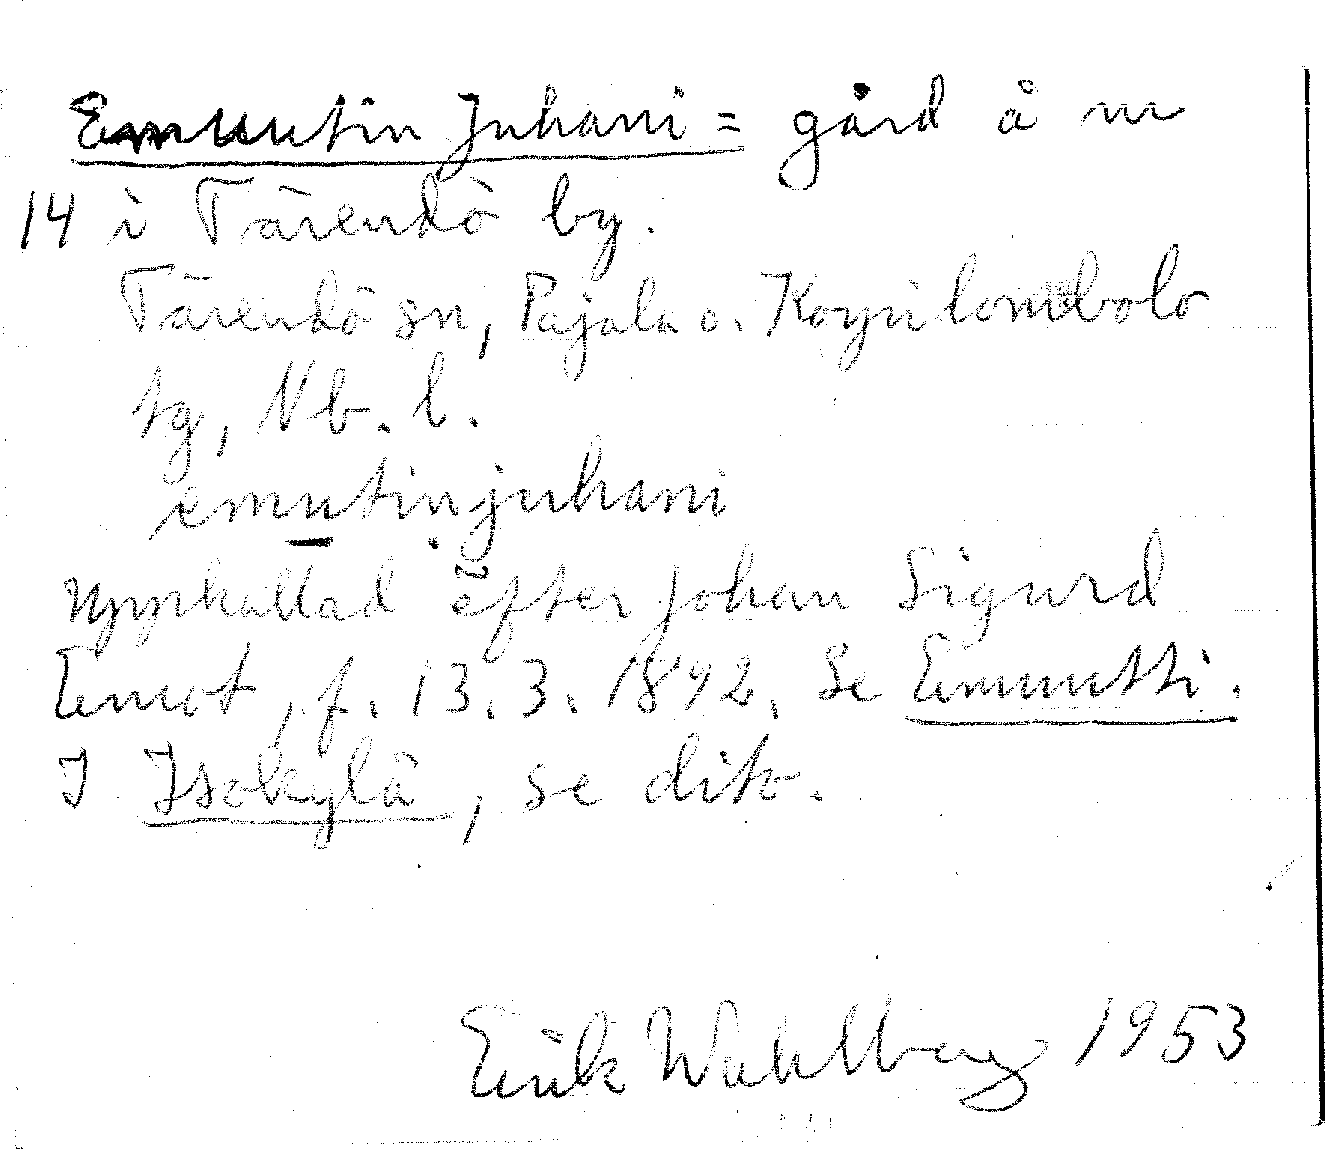 Emuutin Juhani = gård å nr
14 i Tärendö by.
Tärendö sn, Pajala o. Korpilombolo
tg, Nb. l.
emutinjuhani
Uppkallad efter Johan Sigurd
Emot, f. 13.3.1892. Se Emuutti.
I Isokylä, se dito.
Erik Wahlberg 1953